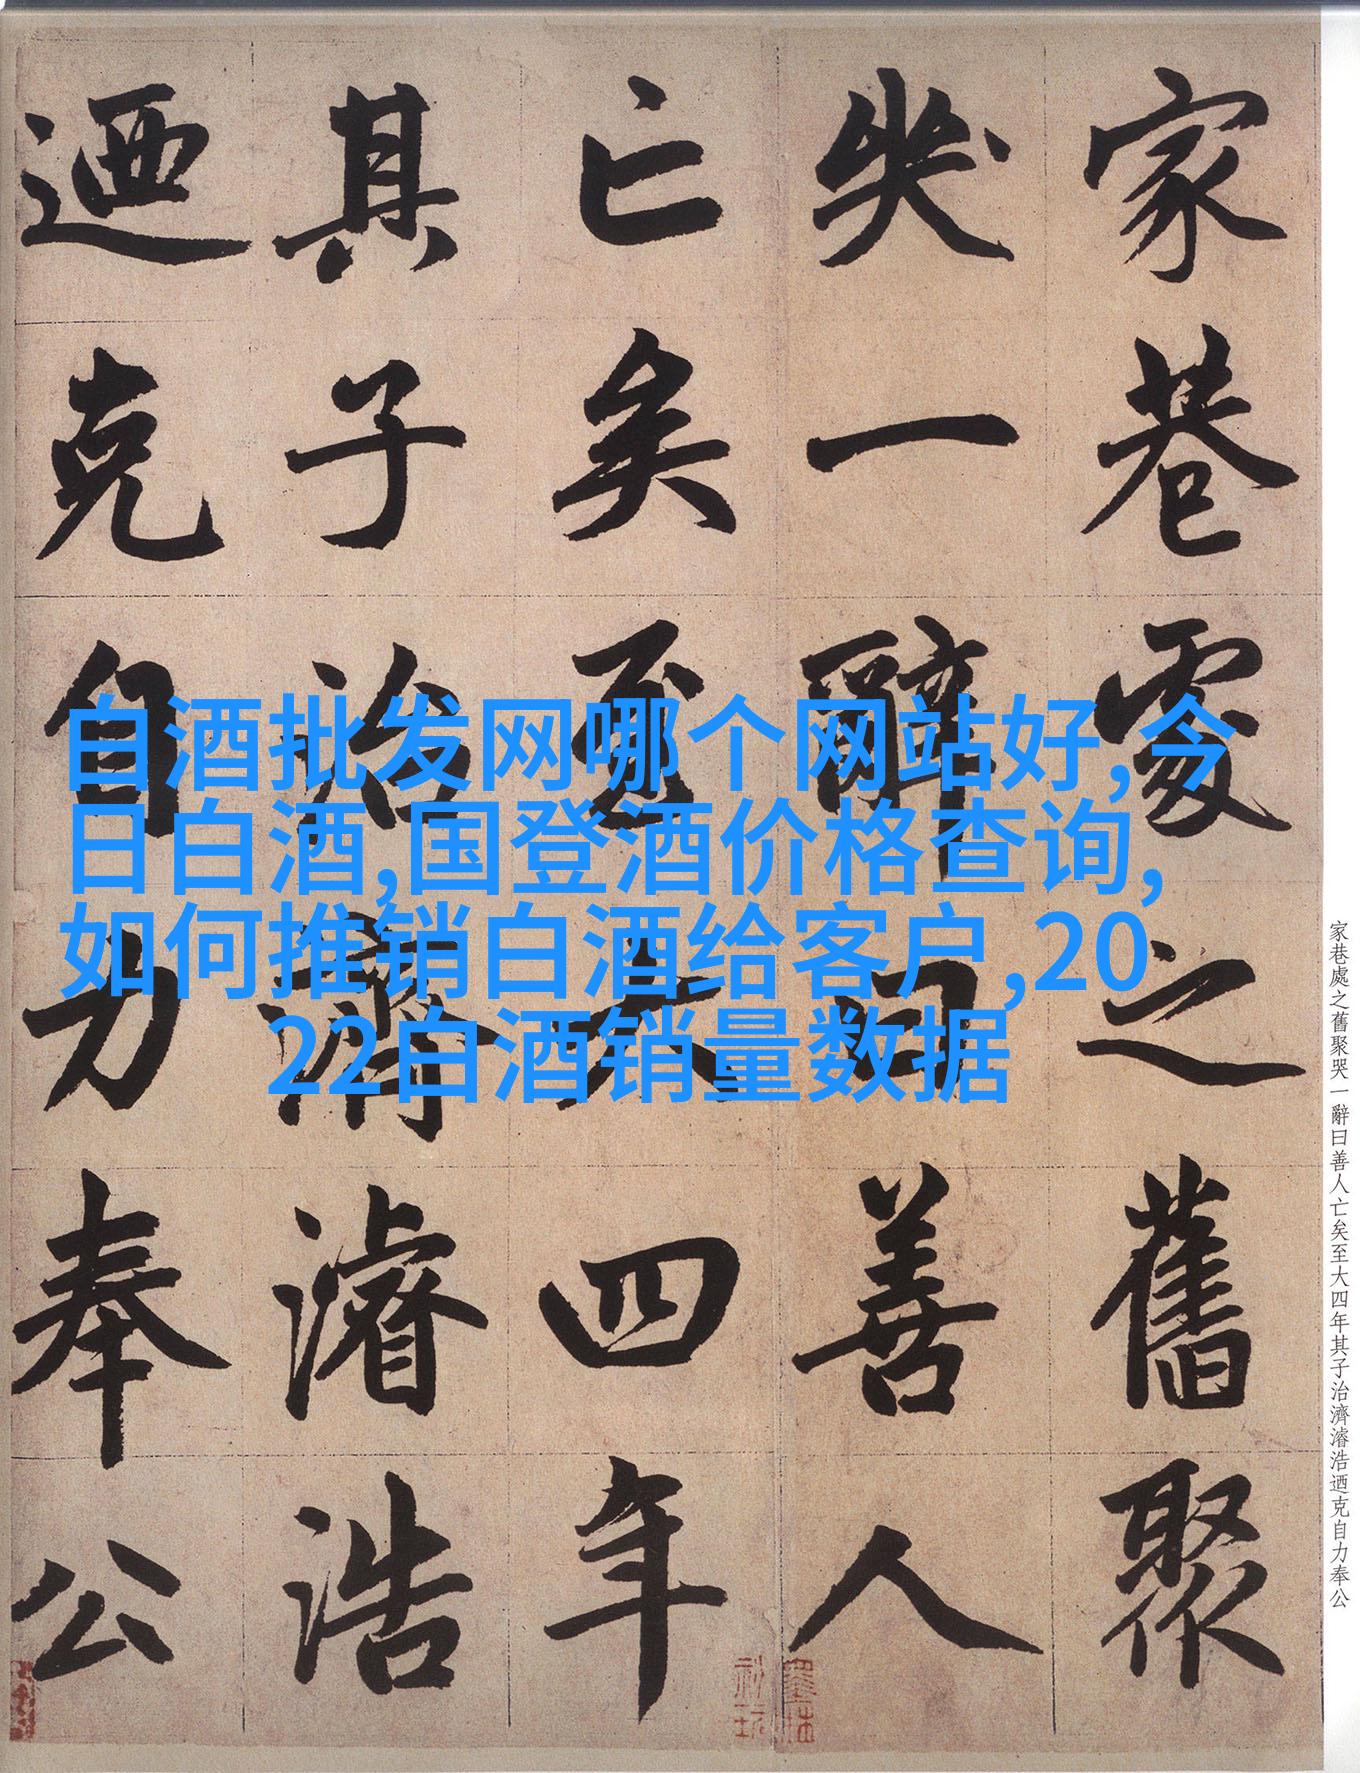 家巷處之舊聚
哭一辭曰善人
亡矣至大四年
其子治濟濬浩
迺克自力奉公
自酒批发网哪个网站好,今
日白酒,国登酒价格查询,
如何推销白酒给客户,20
22白酒销量数据
家巷處之舊聚哭一辭曰善人亡矣至大四年其子治濟濬浩迺克自力奉公